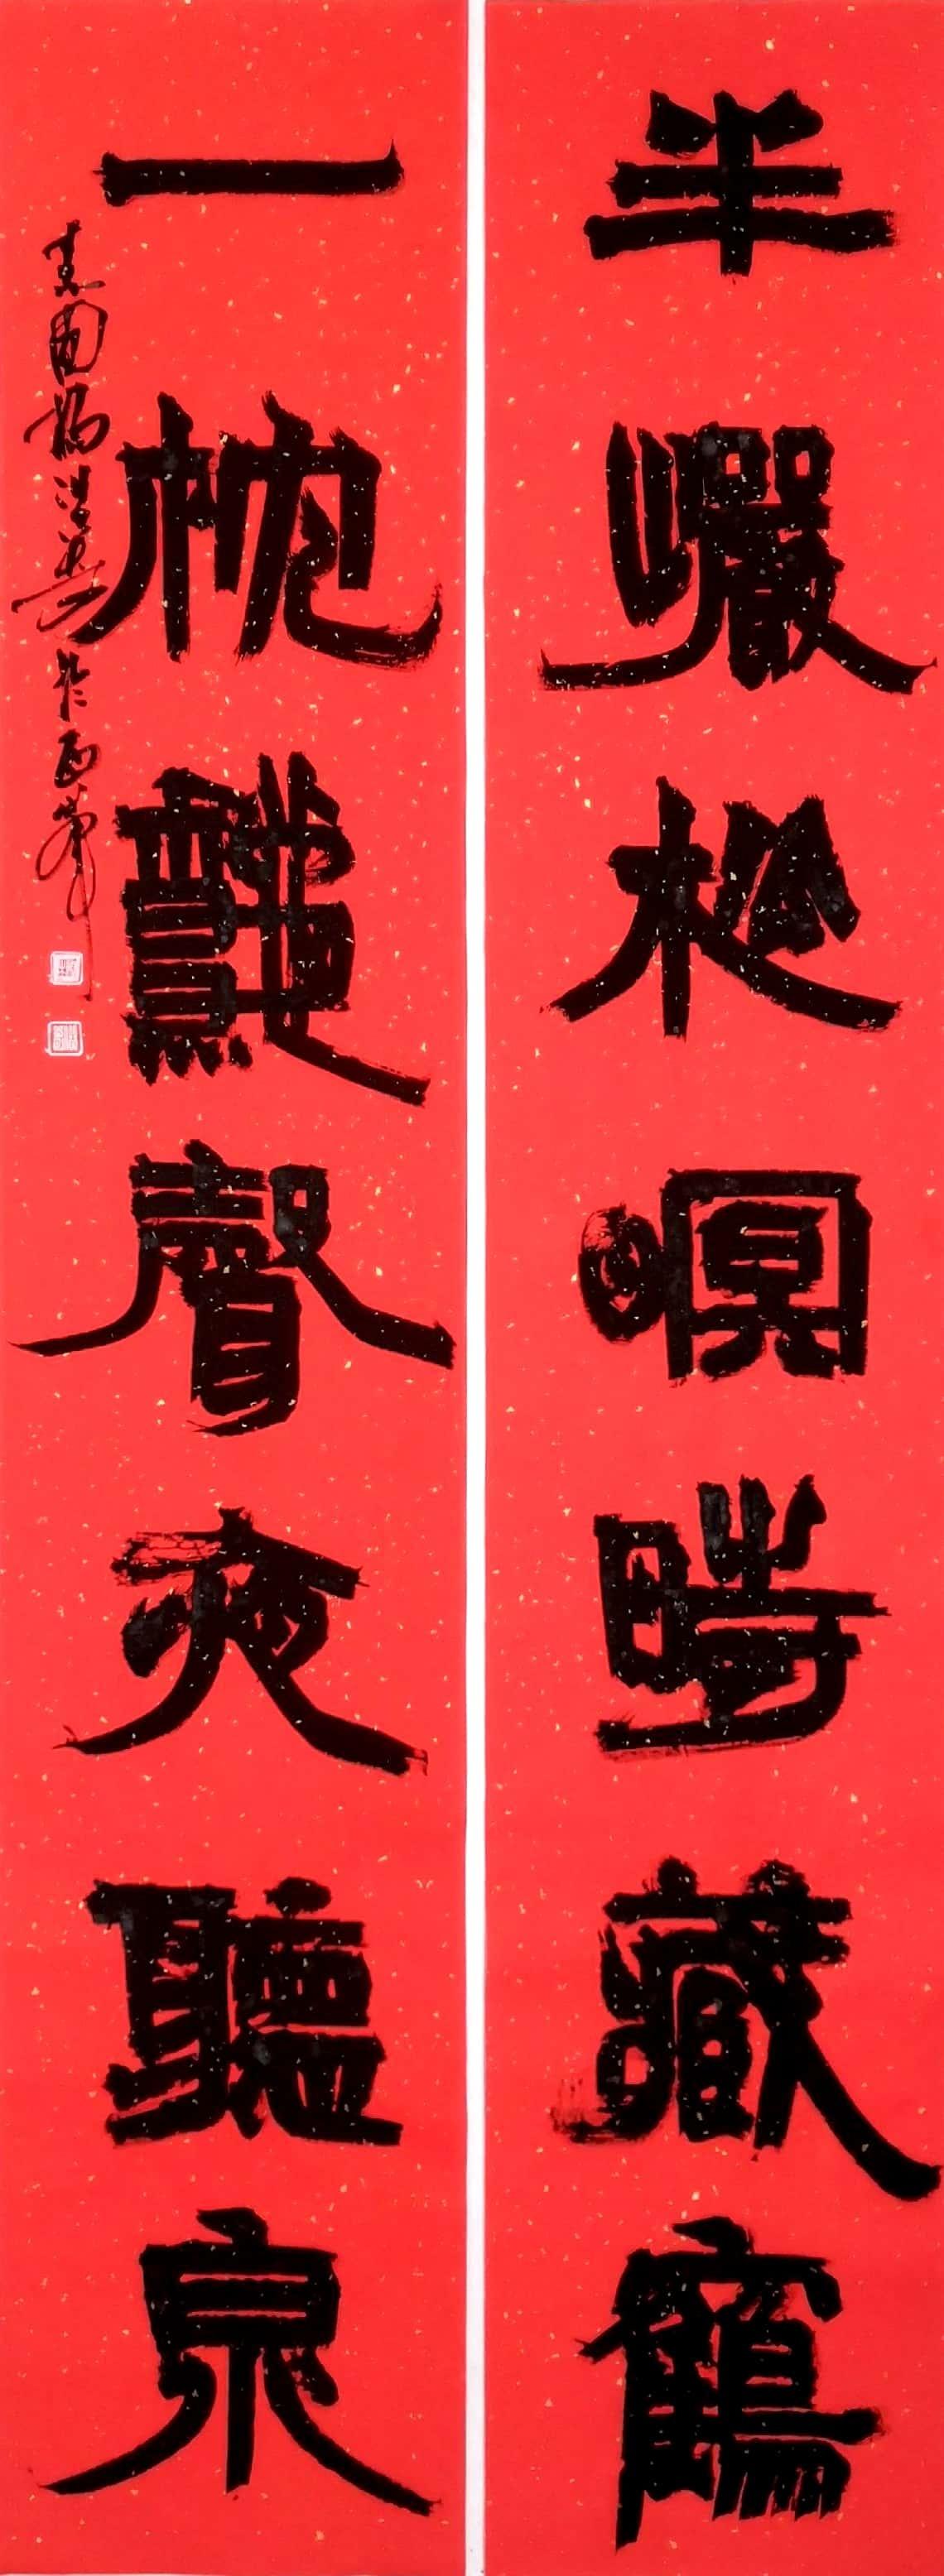 半巖松暝時藏鶴
一枕龝聲夜聽泉